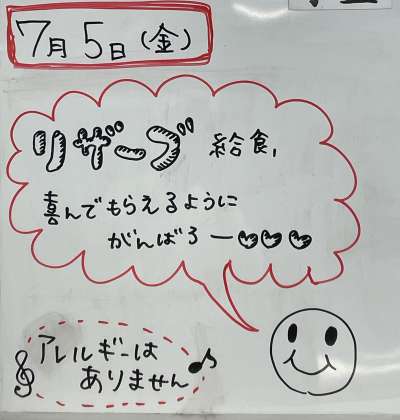 7月5日(金)
リザーブ給食、
喜んでもらえるように
がんばろー♥♥♥
アレルギーは
ありません